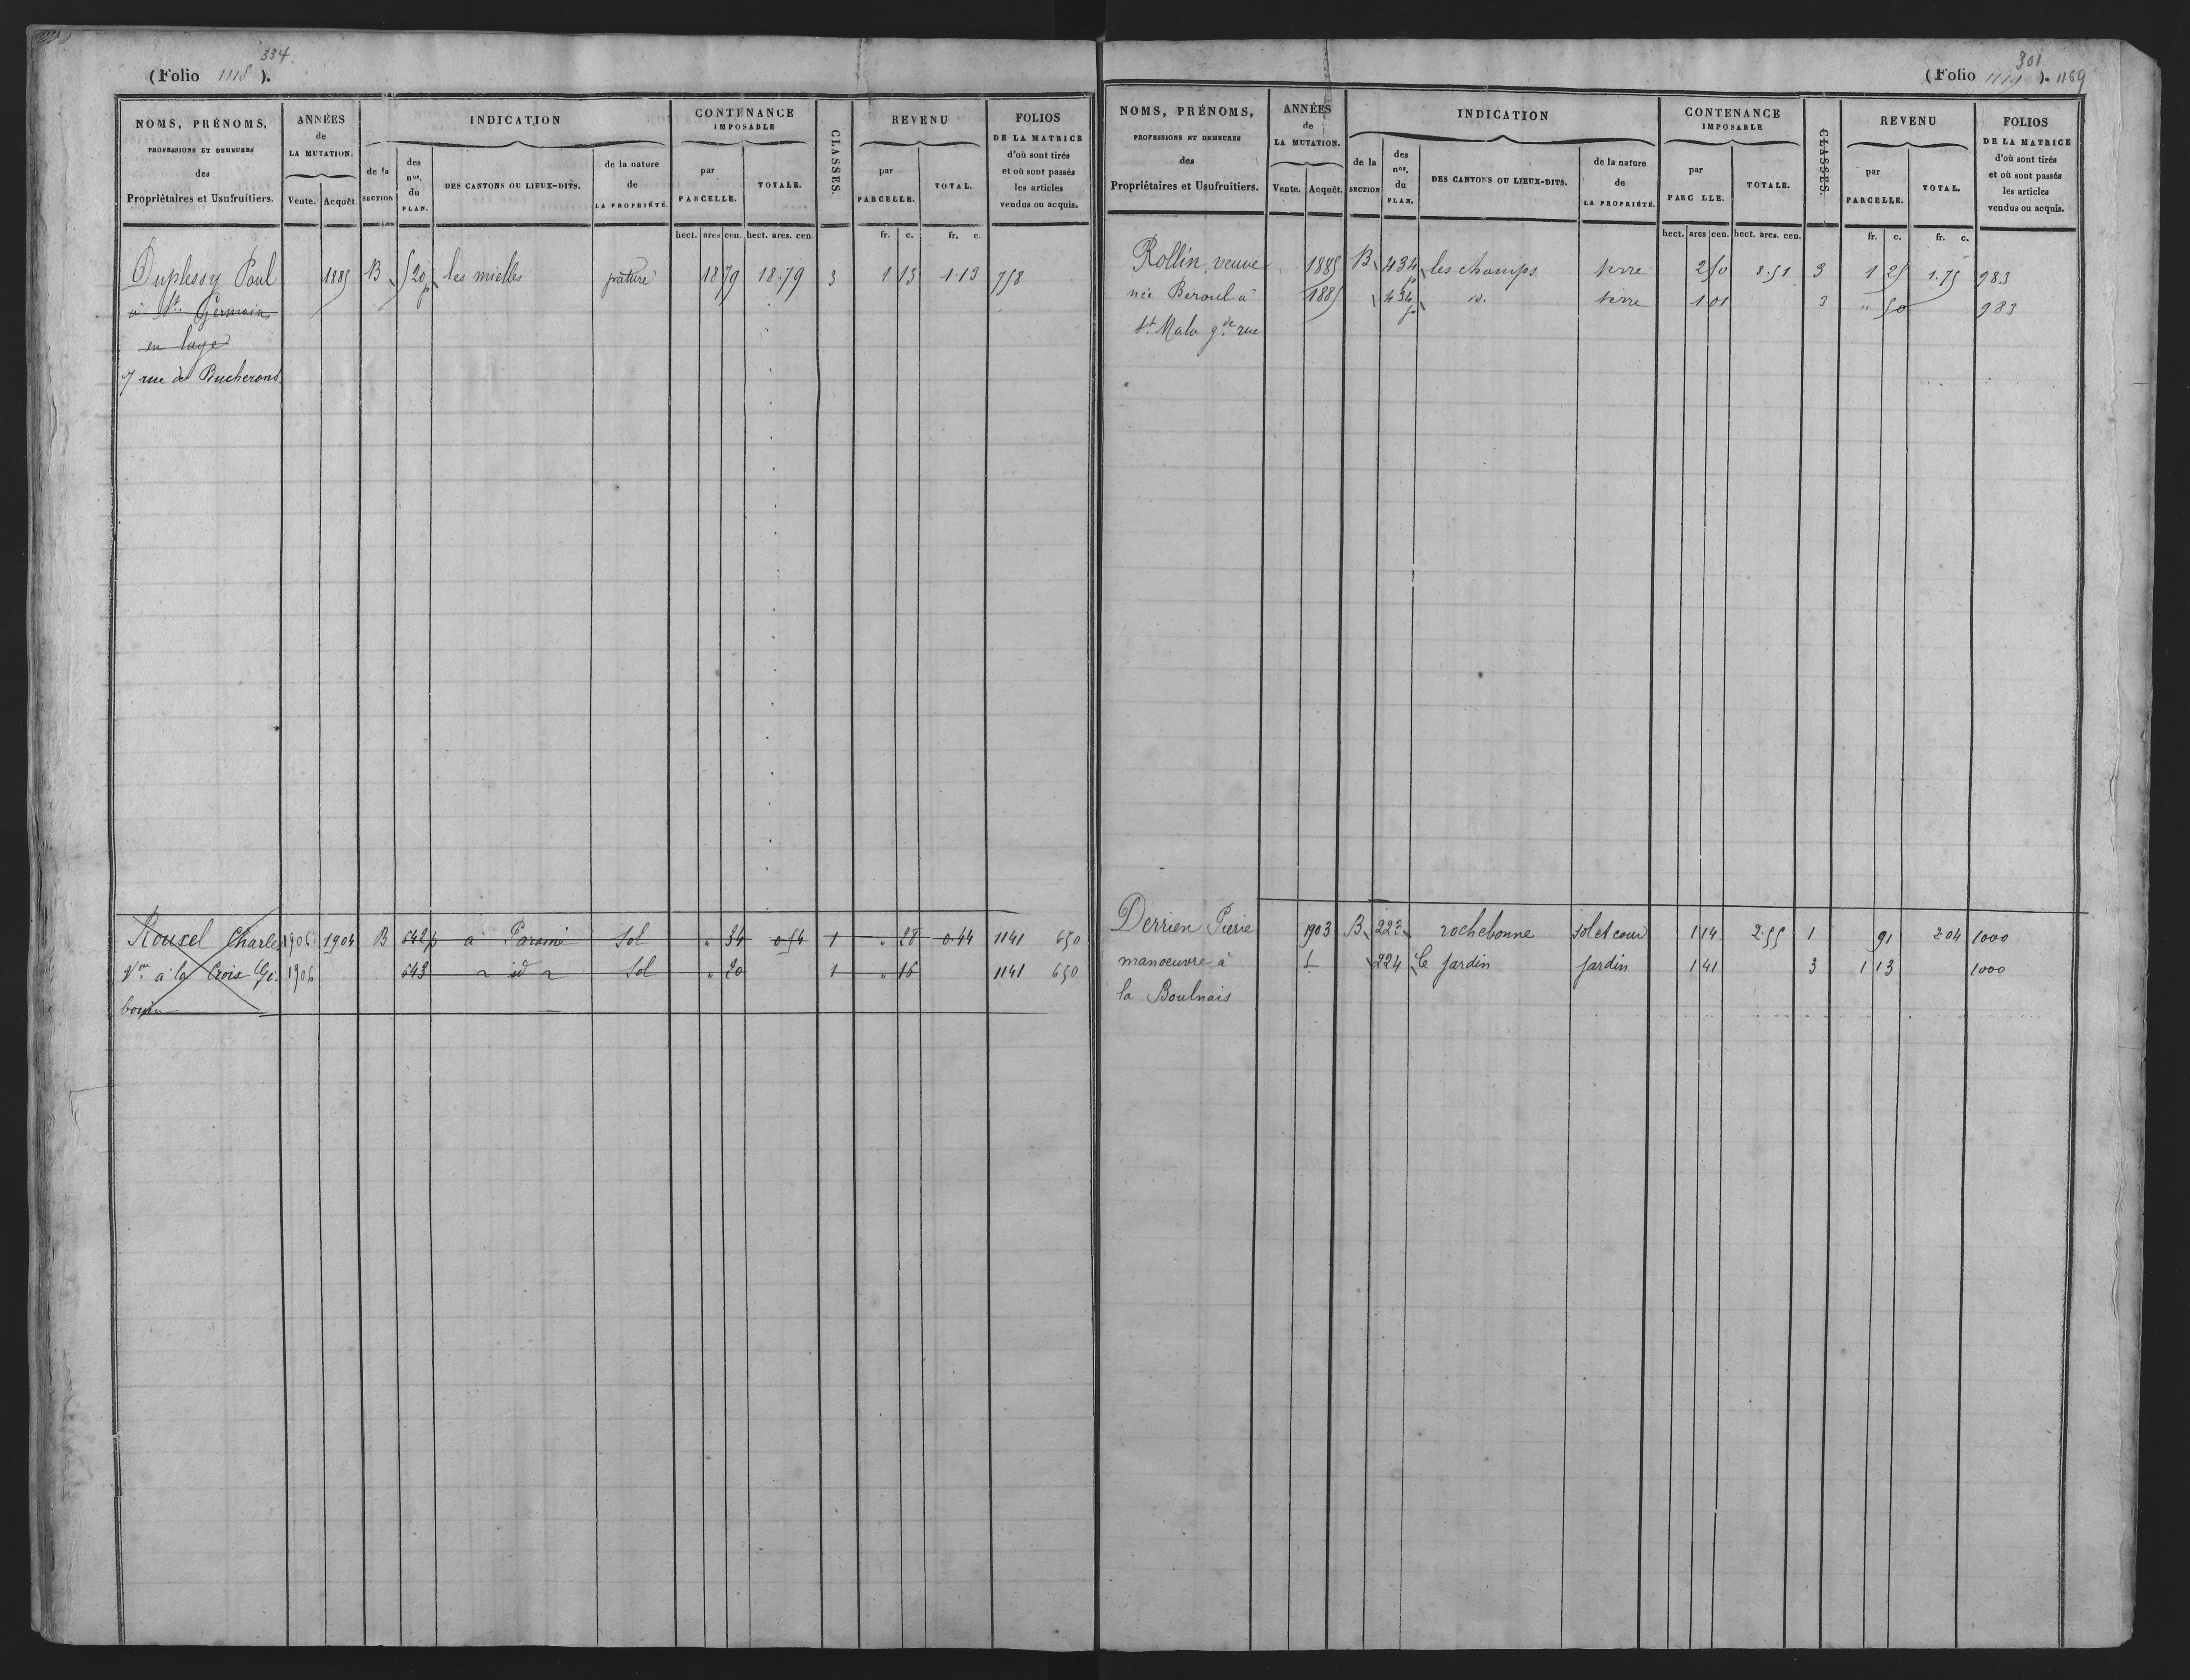 334.
(Folio 1118).
NOMS, PRÉNOMS, PROFESSIONS ET DEMEURES des Propriétaires et Usufruitiers.
ANNÉES de LA MUTATION. Vente. Acquêt.
INDICATION de la SECTION des nos. du PLAN. DES CANTONS OU LIEUX-DITS. de la nature de LA PROPRIÉTÉ.
CONTENANCE IMPOSABLE par PARCELLE. TOTALE.
CLASSES.
REVENU par PARCELLE. TOTAL.
FOLIOS DE LA MATRICE d'où sont tirés et où sont passés les articles vendus ou acquis.
hect. ares cen. hect. ares. cen. fr. c. fr. c.
Duplessy Paul 1885 B 520p les mielles pature 18 79 18.79 3 1 13 1.13 758
à St. Germain
en laye
7 rue des Bucherons
Rouxel Charles 1906 1904 B 642p à Paramé Sol " 34 0.54 1 " 28 0.44 1141 650
à la Croix Gi- 1906 643 id Sol " 20 1 " 16 1141 650
bouin
301
(Folio 1119). 1169
NOMS, PRÉNOMS, PROFESSIONS ET DEMEURES des Propriétaires et Usufruitiers.
ANNÉES de LA MUTATION. Vente. Acquêt.
INDICATION de la SECTION des nos. du PLAN. DES CANTONS OU LIEUX-DITS. de la nature de LA PROPRIÉTÉ.
CONTENANCE IMPOSABLE par PARC LLE. TOTALE.
CLASSES.
REVENU par PARCELLE. TOTAL.
FOLIOS DE LA MATRICE d'où sont tirés et où sont passés les articles vendus ou acquis.
hect. ares cen. hect. ares. cen. fr. c. fr. c.
Rollin, veuve 1885 B 434p les champs terre 2 50 3.51 3 1 25 1.75 983
née Beroul à 1885 434p id. terre 1 01 3 " 50 983
St. Malo gde rue
Derrien Pierre 1903 B 223 rochebonne sol et cour 1 14 2.55 1 91 2.04 1000
manoeuvre à 224 le jardin jardin 1 41 3 1 13 1000
la Boulnais